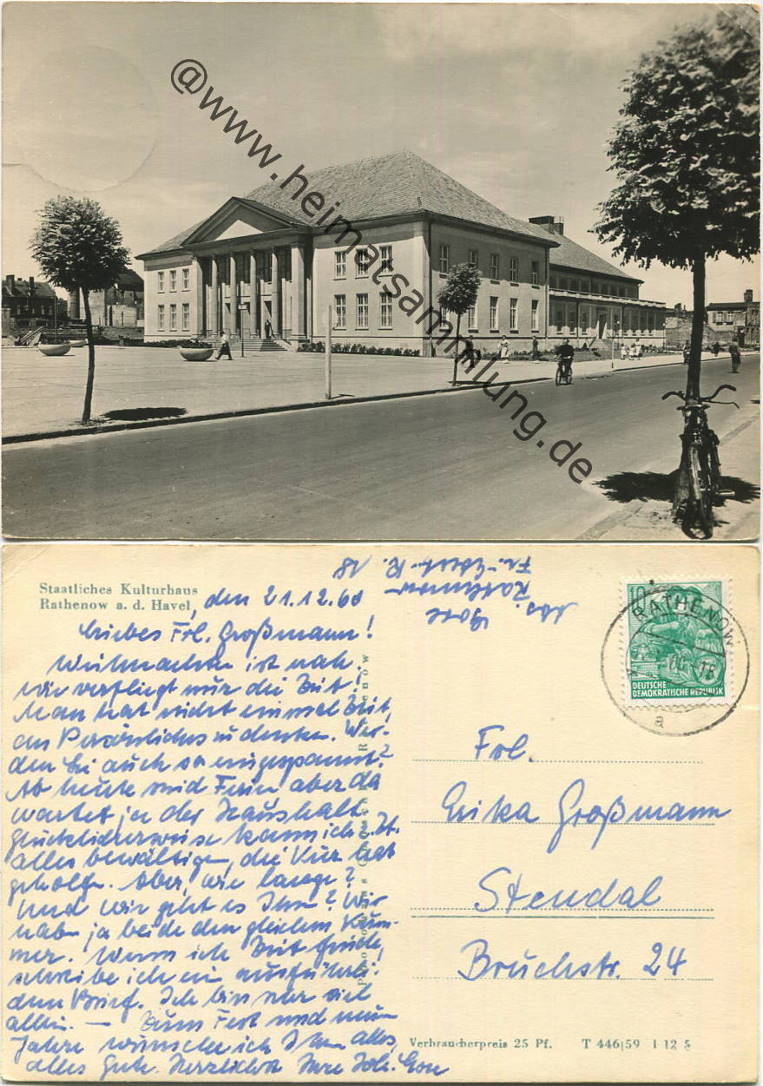 @www.heimatsammlung.de
Staatliches Kulturhaus
Rathenow a. d. Havel, den 21.12.60
Liebes Frl. Großmann!
Weihnachten ist nah.
Wie verfliegt nur die Zeit!
Man hat nicht einmal Zeit,
an Persönliches zu denken. Wer-
den Sie auch so eingespannt?
Ab heute sind Ferien aber da
wartet ja der Haushalt.
Glücklicherweise kann ich z. Zt.
alles bewältigen, die Kur hat
geholfen. Aber, wie lange?
Und wie geht es Ihnen? Wir
haben ja beide den gleichen Kum-
mer. Wenn ich Zeit finde,
schreibe ich ein ausführli-
chen Brief. Ich bin sehr viel
allein. — Zum Fest und neuen
Jahre wünsche ich Ihnen alles,
alles Gute. Herzlichst Ihre
Rathenow
18
RATHENOW
a
10
DEUTSCHE
DEMOKRATISCHE REPUBLIK
Frl.
Erika Großmann
Stendal
Bruchstr. 24
Verbraucherpreis 25 Pf. T 446/59 I 12 5